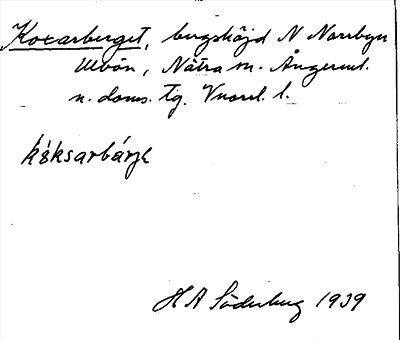 Koxarberget, bergshöjd N Norrbyn
Ulvön, Nätra sn. Ångerml.
n. doms. tg. Vnorrl. l.
kö̀ksarbárjε
H A Söderberg 1939